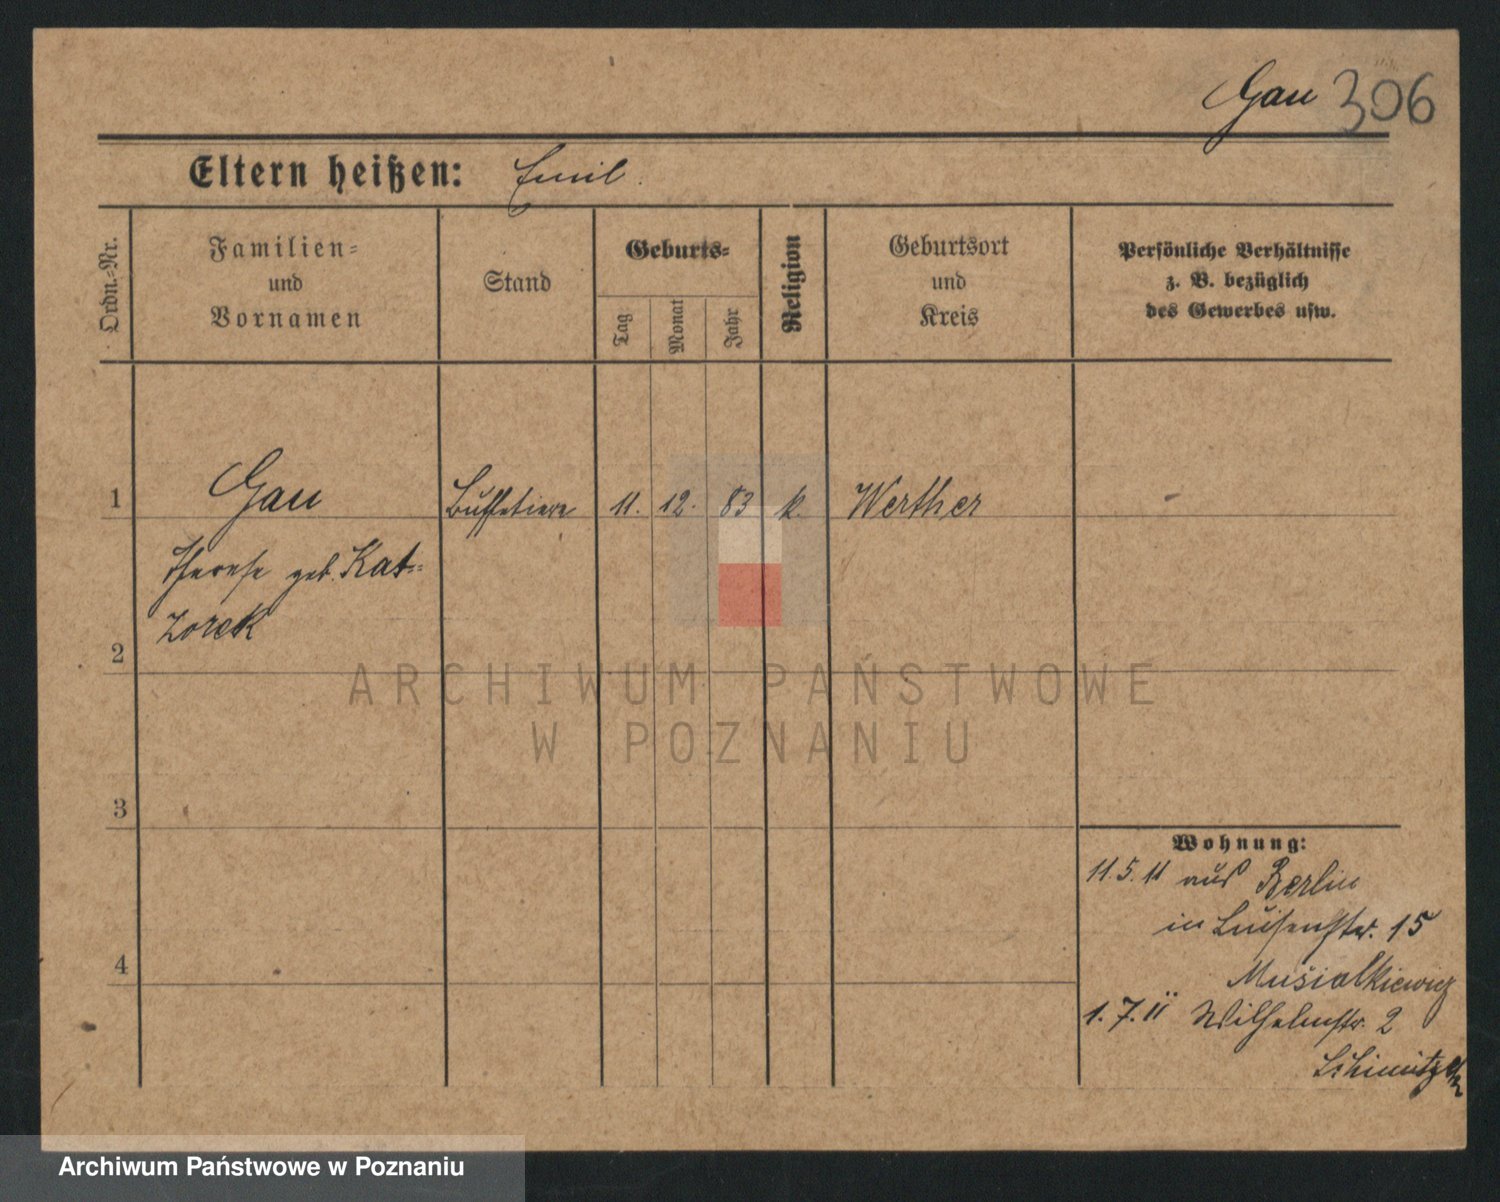 Gau 306
Eltern heißen: Emil.
Ordn.-Nr.
Familien-
und
Vornamen
Stand
Geburts-
Tag
Monat
Jahr
Religion
Geburtsort
und
Kreis
Persönliche Verhältnisse
z. B. bezüglich
des Gewerbes usw.
1 Gau Buffetiere 11. 12. 83 k. Werther -
Therese geb. Kat-
zorek
2
3
4
Wohnung:
11.5.11 aus Berlin
in Luisenstr. 15
Musialkiewicz
1.7.11 Wilhelmstr. 2
ARCHIWUM PAŃSTWOWE
W POZNANIU
Archiwum Państwowe w Poznaniu